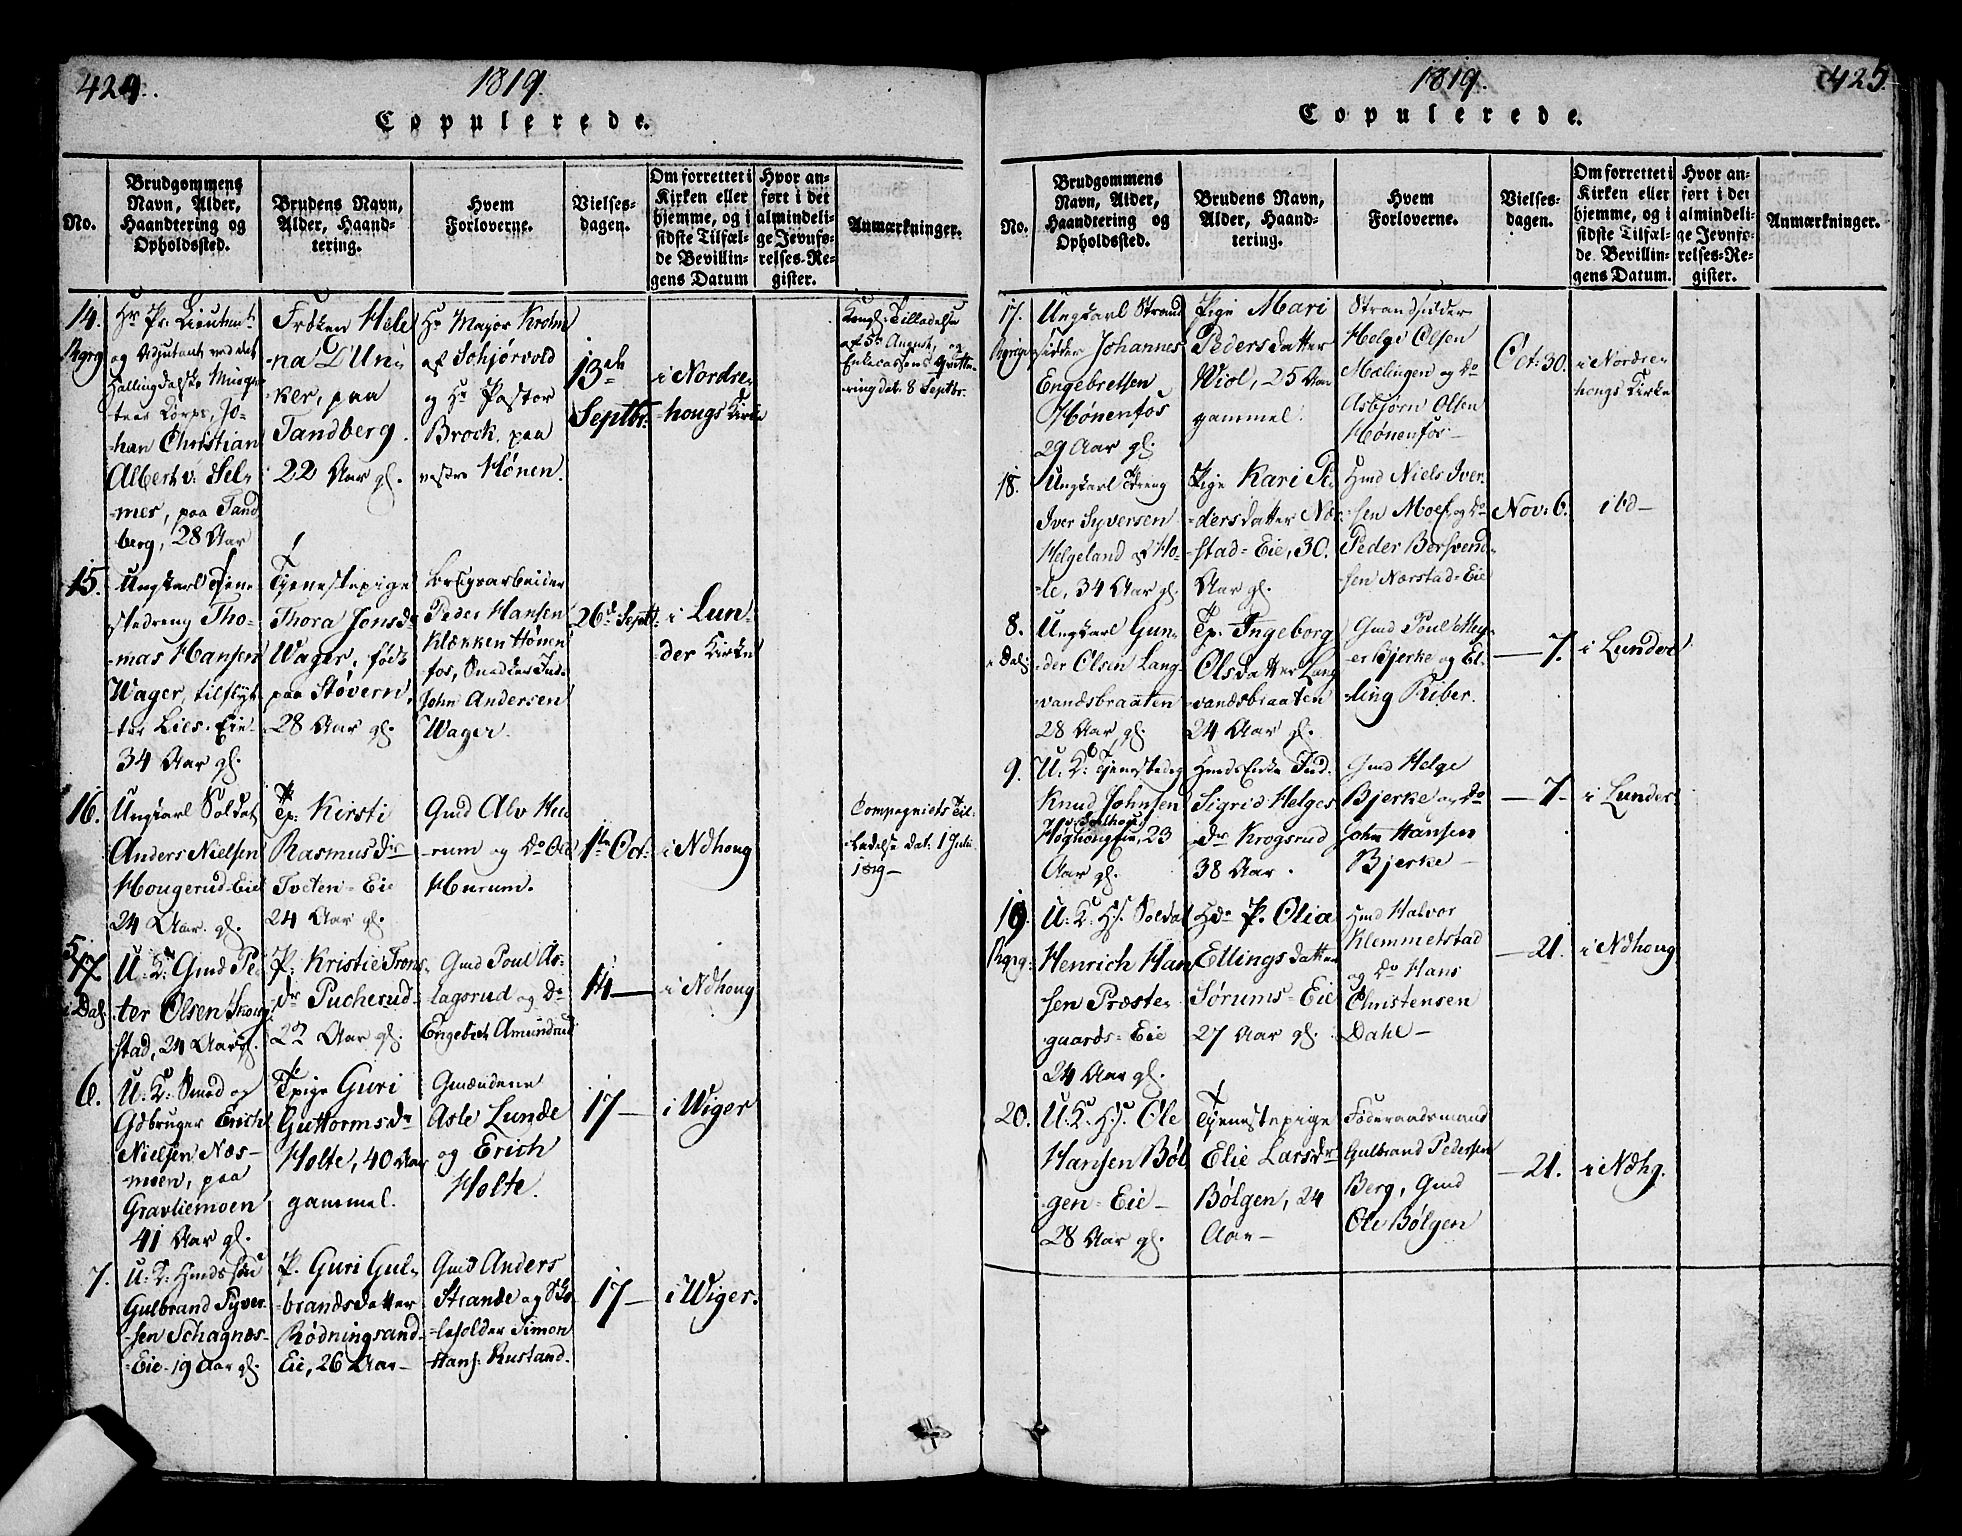 424.
1819.
Copulerede.
No.
Brudgommens
Navn, Alder,
Haandtering og
Opholdssted.
Brudens Navn,
Alder, Haand-
tering.
Hvem
Forloverne.
Vielses-
dagen.
Om forrettet i
Kirken eller
hjemme, og i
sidste Tilfæl-
de Bevillin-
gens Datum
Hvor an-
ført i det
almindeli-
ge Jevnfø-
relses-Re-
gister.
Anmærkninger.
14.
Rgrg
Hr Pr: Lieutnt
og Adjutant ved det
Hallingdalske Musqe-
teer Corps, Jo-
han Christian
Albert v: Sel-
-mer, paa Tand
berg, 28 Aar
Frøken Hele
na D'Uni
-ker, paa
Tandberg.
22 Aar gl.
Hr Major Krohn
af Schjørvold
og Hr Pastor
Brock, paa
vestre Hønen.
13de
Septbr:
i Nordre-
-hougs Kirke
Kongl: Tilladelse
af 5te August, og
Enkecassens Qvitte-
-ring dat: 8 Septbr.
15.
Ungkarl Tjene-
stedreng Tho-
-mas Hansen
Wager, tilflyt-
-ter Lies-Eie
34 Aar gl.
Tjenestepige
Thora Jonsdr
Wager, født
paa Støvern,
28 Aar gl.
Peder Hansen
Klækken Hønen
fos,
John Andersen
Wager.
26de Septbr:
i Lun-
-der Kirke
16.
Ungkarl Soldat
Anders Nielsen
Hougerud-Eie
24 Aar. gl.
Tp: Kirsti
Rasmusdr
Tveten-Eie
24 Aar gl.
Gmd Alv Hu-
-rum og Do Ole
Hurum.
1te Oct.
i Ndhoug
Compagniets Til-
-ladelse dat. 1 Juli
1819-
17
5
i Dal:
U: K: Gmd Pe-
ter Olsen
stad, 24 Aar gl.
P. Kristie Trons-
dr Pucherud-
22 Aar gl.
Gmd Poul As-
lagsrud og Do
Engebret Amundrud
14-
i Ndhoug
6.
U: K: Smed og
Gdbruger Erich
Nielsen Næs-
moen, paa
Gravliemoen
41 Aar gl.
Tpige Guri
Guttormsdr
Holte, 40 Aar
gammel.
Gmændene
Asle Lunde
og Erich
Holte.
17-
i Wiger
7.
U: K: Hmdssøn
Gulbrand Syver-
-sen Schagnæs-
-Eie 19 Aar gl.
P. Guri Gul-
-brandsdatter
Rødningsand-
Eie, 26 Aar-
Gmd Anders
Strande og Sko-
leholder Simon
Hans: Rustand.
17-
i Wiger.
1819.
425.
Copulerede.
No.
Brudgommens
Navn, Alder,
Haandtering og
Opholdssted.
Brudens Navn,
Alder, Haand-
tering.
Hvem
Forloverne.
Vielses-
dagen.
Om forrettet i
Kirken eller
hjemme, og i
sidste Tilfæl-
de Bevillin-
gens Datum.
Hvor an-
ført i det
almindeli-
ge Jevnfø-
relses-Re-
gister.
Anmærkninger.
17.
Ungkarl Strand
sidder Johannes
Engebretsen
Hønenfos
29 Aar gl.
Pige Mari
Pedersdatter
Wiol, 25 Aar
gammel.
Strandsidder
Helge Olsen
Mælingen og Do
Asbjørn Olsen
Hønenfos-
Oct: 30.
i Nordre-
hougs Kirke
18.
Ungkarl Dreng
Iver Syversen
Helgeland af Ho-
-le, 34 Aar gl.
Pige Kari Pe-
-dersdatter Nær-
-stad-Eie, 30.
Aar gl.
Hmd Niels Iver-
-sen Moe og Do
Peder Borsvend-
-sen Nærstad-Eie
Nov: 6.
ibd-
8.
i Dal:
Ungkarl Gun-
-der Olsen Lang-
vandsbraaten
28 Aar gl.
Tp: Ingeborg
Olsdatter Lang
-vandsbraaten
24 Aar gl.
Gmd Poul Mey-
-er Bjerke og El-
-ling Riber.
-7.
i Lunder
9.
U: K: Tjenestedrg
Knud Johnsen
Høghoug Eie, 23
Aar gl.
Hmds Enke Ind.
Sigrid Helges
dr Krogsrud
38 Aar.
Gmd Helge
Bjerke og Do
John Hansen
Bjerke-
-7-
i Lunder
19.
Rgrg:
U: K: Hs: Soldat
Henrich Han-
sen Præste-
gaards-Eie
24 Aar gl.
Hdr P. Olia
Ellingsdatter
Sørums-Eie
27 Aar gl.
Hmd Halvor
Klemmetstad
og Do Hans
Christensen
Dahl-
-21.
i Ndhoug
20.
U: K: Hs: Ole
Hansen Bøl-
gen-Eie-
28 Aar gl.
Tjenestepige
Elie Larsdr
Bølgen, 24
Aar-
Føderaadsmand
Gulbrand Pedersen
Berg, Gmd
Ole Bølgen
-21.
i Ndhg.